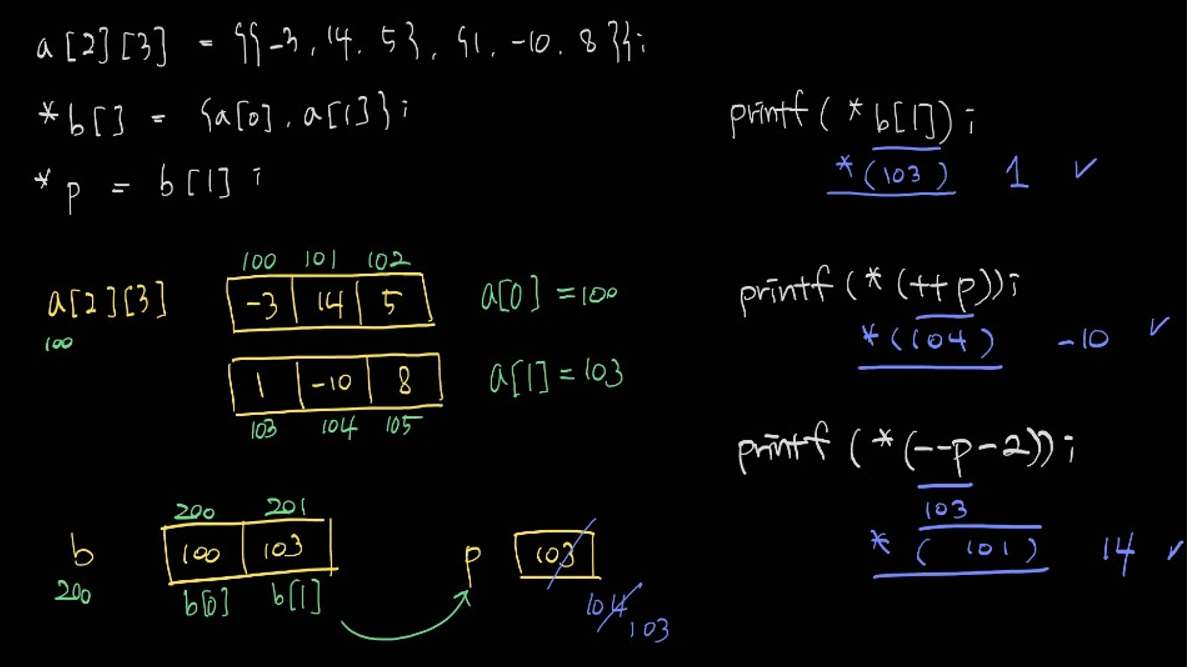 a[2][3] = {{-3, 14. 5}, {1. -10. 8}};
*b[] = {a[0]. a[1]};
*p = b[1];
a[2][3]
100
100 101 102
-3 14 5
a[0] = 100
1 -10 8
103 104 105
a[1] = 103
b
200
200 201
100 103
b[0] b[1]
p 103
104
103
printf( *b[1]);
*(103) 1 ✓
printf(*(++p));
*(104) -10 ✓
printf(*(--p-2));
103
*( 101) 14 ✓